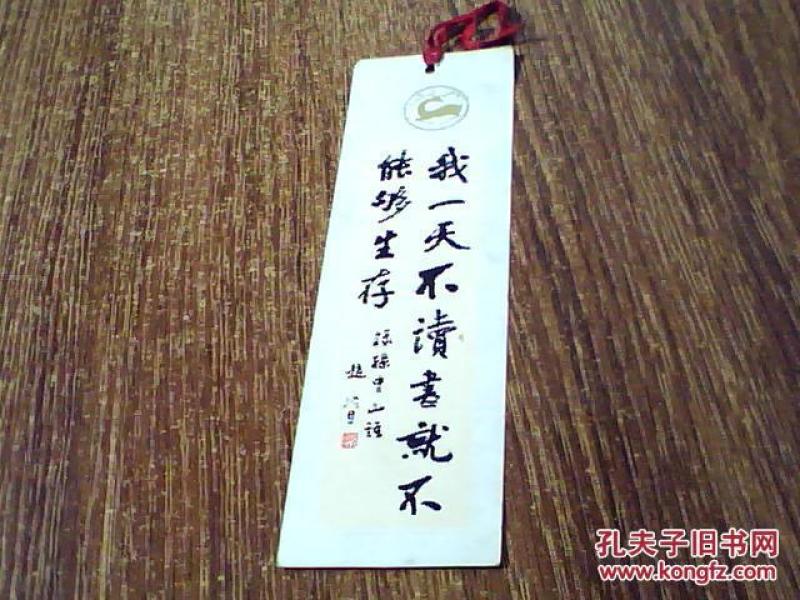 我一天不讀書就不
能够生存
孫中山語
趙
孔夫子旧书网
www.kongfz.com